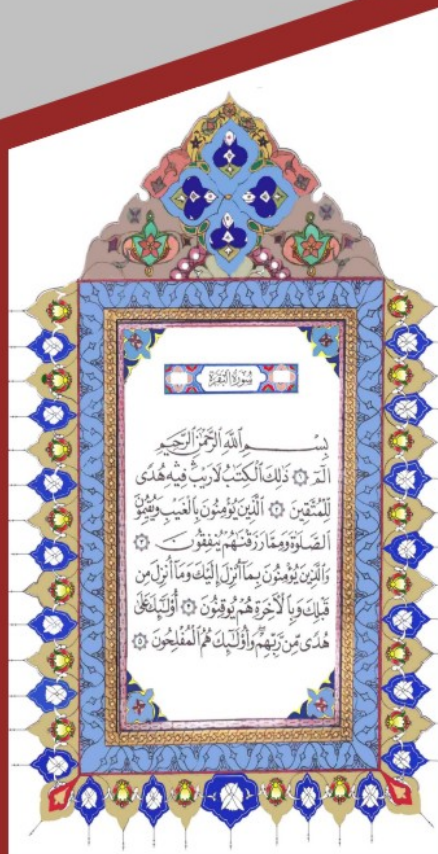 سُورَةُ الْبَقَرَةِ
بِسْمِ اللَّهِ الرَّحْمَٰنِ الرَّحِيمِ
الٓمٓ ۝١ ذَٰلِكَ ٱلْكِتَٰبُ لَا رَيْبَ ۛ فِيهِ هُدًى
لِّلْمُتَّقِينَ ۝٢ ٱلَّذِينَ يُؤْمِنُونَ بِٱلْغَيْبِ وَيُقِيمُونَ
ٱلصَّلَوٰةَ وَمِمَّا رَزَقْنَٰهُمْ يُنفِقُونَ ۝٣
وَٱلَّذِينَ يُؤْمِنُونَ بِمَآ أُنزِلَ إِلَيْكَ وَمَآ أُنزِلَ مِن
قَبْلِكَ وَبِٱلْءَاخِرَةِ هُمْ يُوقِنُونَ ۝٤ أُو۟لَٰٓئِكَ عَلَىٰ
هُدًى مِّن رَّبِّهِمْ ۖ وَأُو۟لَٰٓئِكَ هُمُ ٱلْمُفْلِحُونَ ۝٥